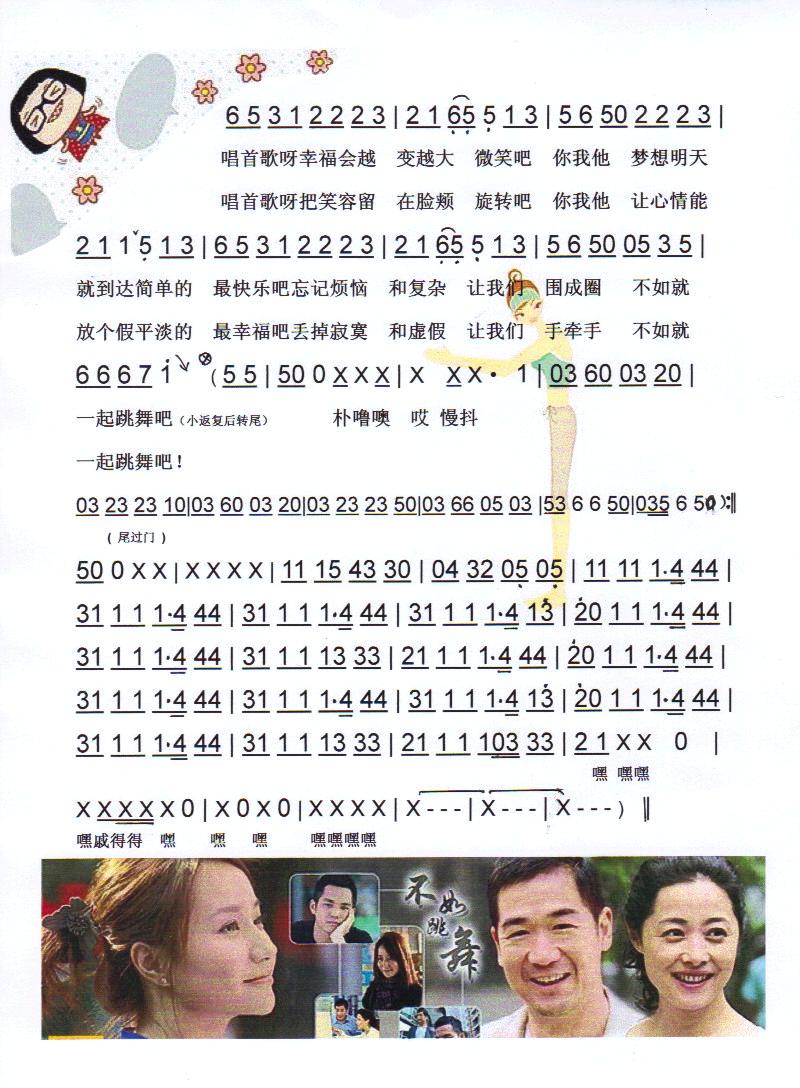 6 5 3 1 2 2 2 3 | 2 1 65 5 1 3 | 5 6 50 2 2 2 3 |
唱首歌呀幸福会越 变越大 微笑吧 你我他 梦想明天
唱首歌呀把笑容留 在脸颊 旋转吧 你我他 让心情能
2 1 1 5 1 3 | 6 5 3 1 2 2 2 3 | 2 1 65 5 1 3 | 5 6 50 05 3 5 |
就到达简单的 最快乐吧忘记烦恼 和复杂 让我们 围成圈 不如就
放个假平淡的 最幸福吧丢掉寂寞 和虚假 让我们 手牵手 不如就
6 6 6 7 i (5 5 | 50 0 X X X | X X X· 1 | 03 60 03 20 |
一起跳舞吧（小返复后转尾） 朴噜噢 哎 慢抖
一起跳舞吧！
03 23 23 10|03 60 03 20|03 23 23 50|03 66 05 03 |53 6 6 50|035 6 50):‖
( 尾过门 )
50 0 X X | X X X X | 11 15 43 30 | 04 32 05 05 | 11 11 1·4 44 |
31 1 1 1·4 44 | 31 1 1 1·4 44 | 31 1 1 1·4 13 | 20 1 1 1·4 44 |
31 1 1 1·4 44 | 31 1 1 13 33 | 21 1 1 1·4 44 | 20 1 1 1·4 44 |
31 1 1 1·4 44 | 31 1 1 1·4 44 | 31 1 1 1·4 13 | 20 1 1 1·4 44 |
31 1 1 1·4 44 | 31 1 1 13 33 | 21 1 1 103 33 | 2 1 X X 0 |
嘿 嘿嘿
X X X X X 0 | X 0 X 0 | X X X X | X - - - | X - - - | X - - - ) ‖
嘿戚得得 嘿 嘿 嘿 嘿嘿嘿嘿
不如跳舞